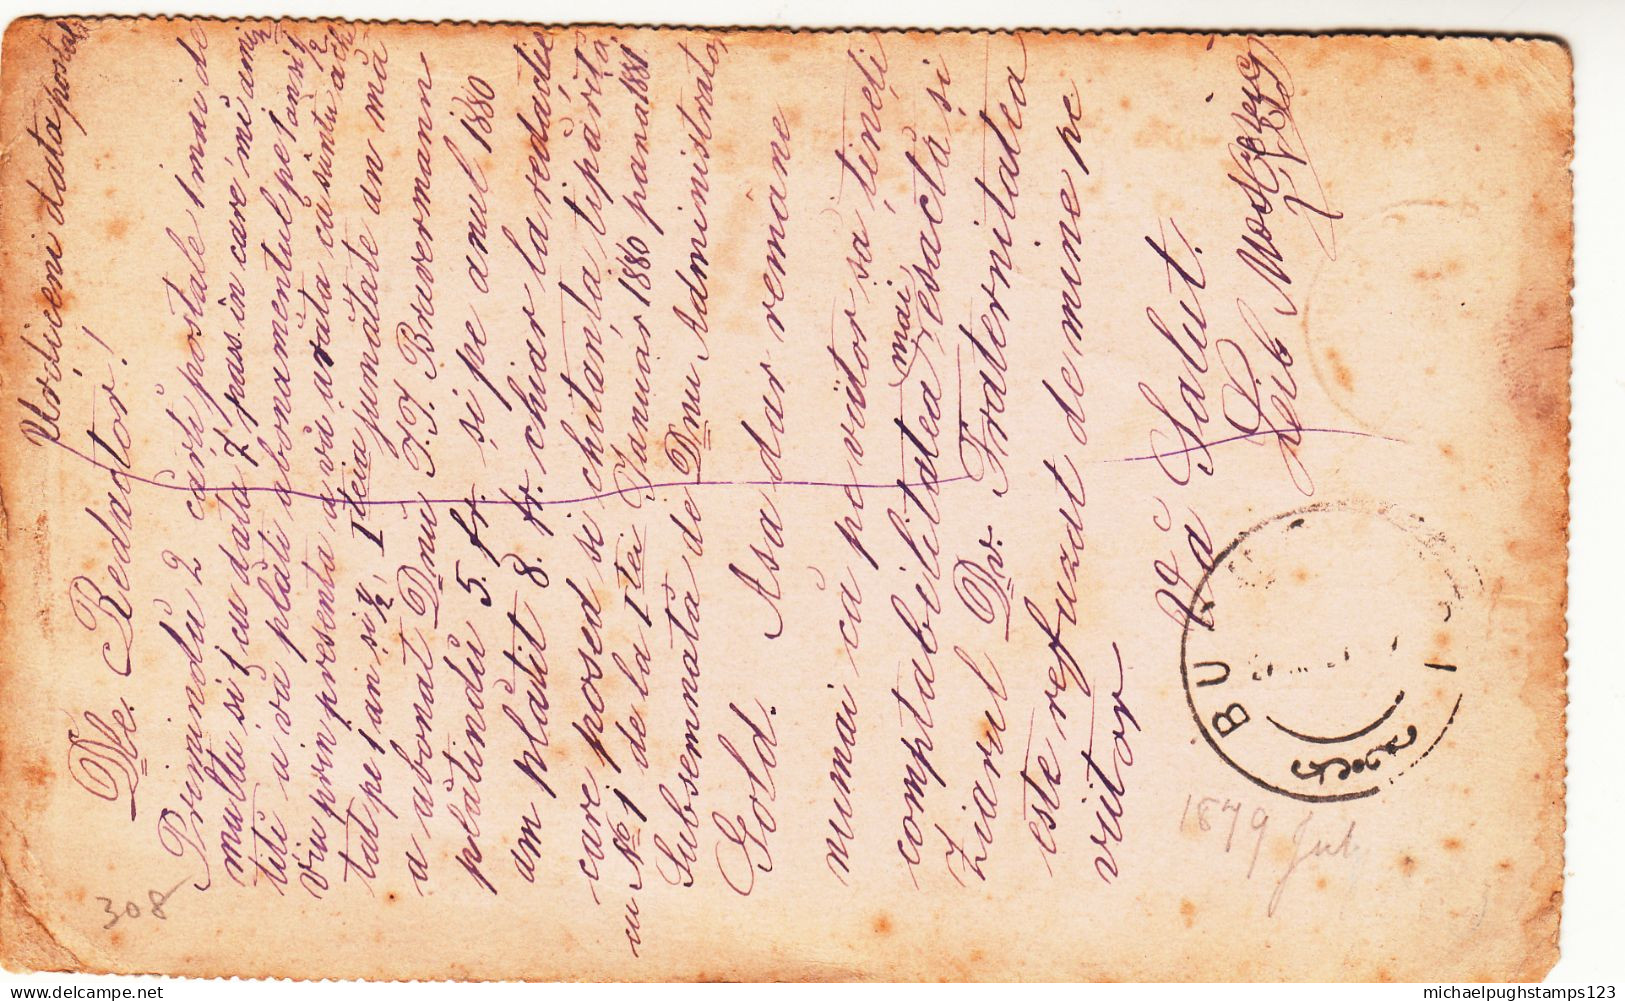 data postală
Dle. Redactor!
Primindu 2 cărti postale 1 mai de
multu si 1 cu data 7 pass in care mi anin
titi a vă plăti abonamentul pe 1 an si 1/2
viu prin presenta a vă arăta ca suntu achi
tat pe 1 an si 1/2, I teia jumătate an mă
a abonat Dnu J. J. Bravermann
plătindŭ 5. fr. si pe anul 1880
am plătit 8. fr. chiar la redactie
care posed si chitanta tipărită
cu No 1 de la I tei Januar 1880 pana 1881
Subsemnată de Dnu Administrator
Gold. Asa dar remane
numai că pe viitor să tineti
comptabilitatea mai esactă si
Ziarul Dv. Fraternitatea
este refuzat de mine pe
viitor
Vă Salut.
Leib
BU
308
1879 Jul
michaelpughstamps123